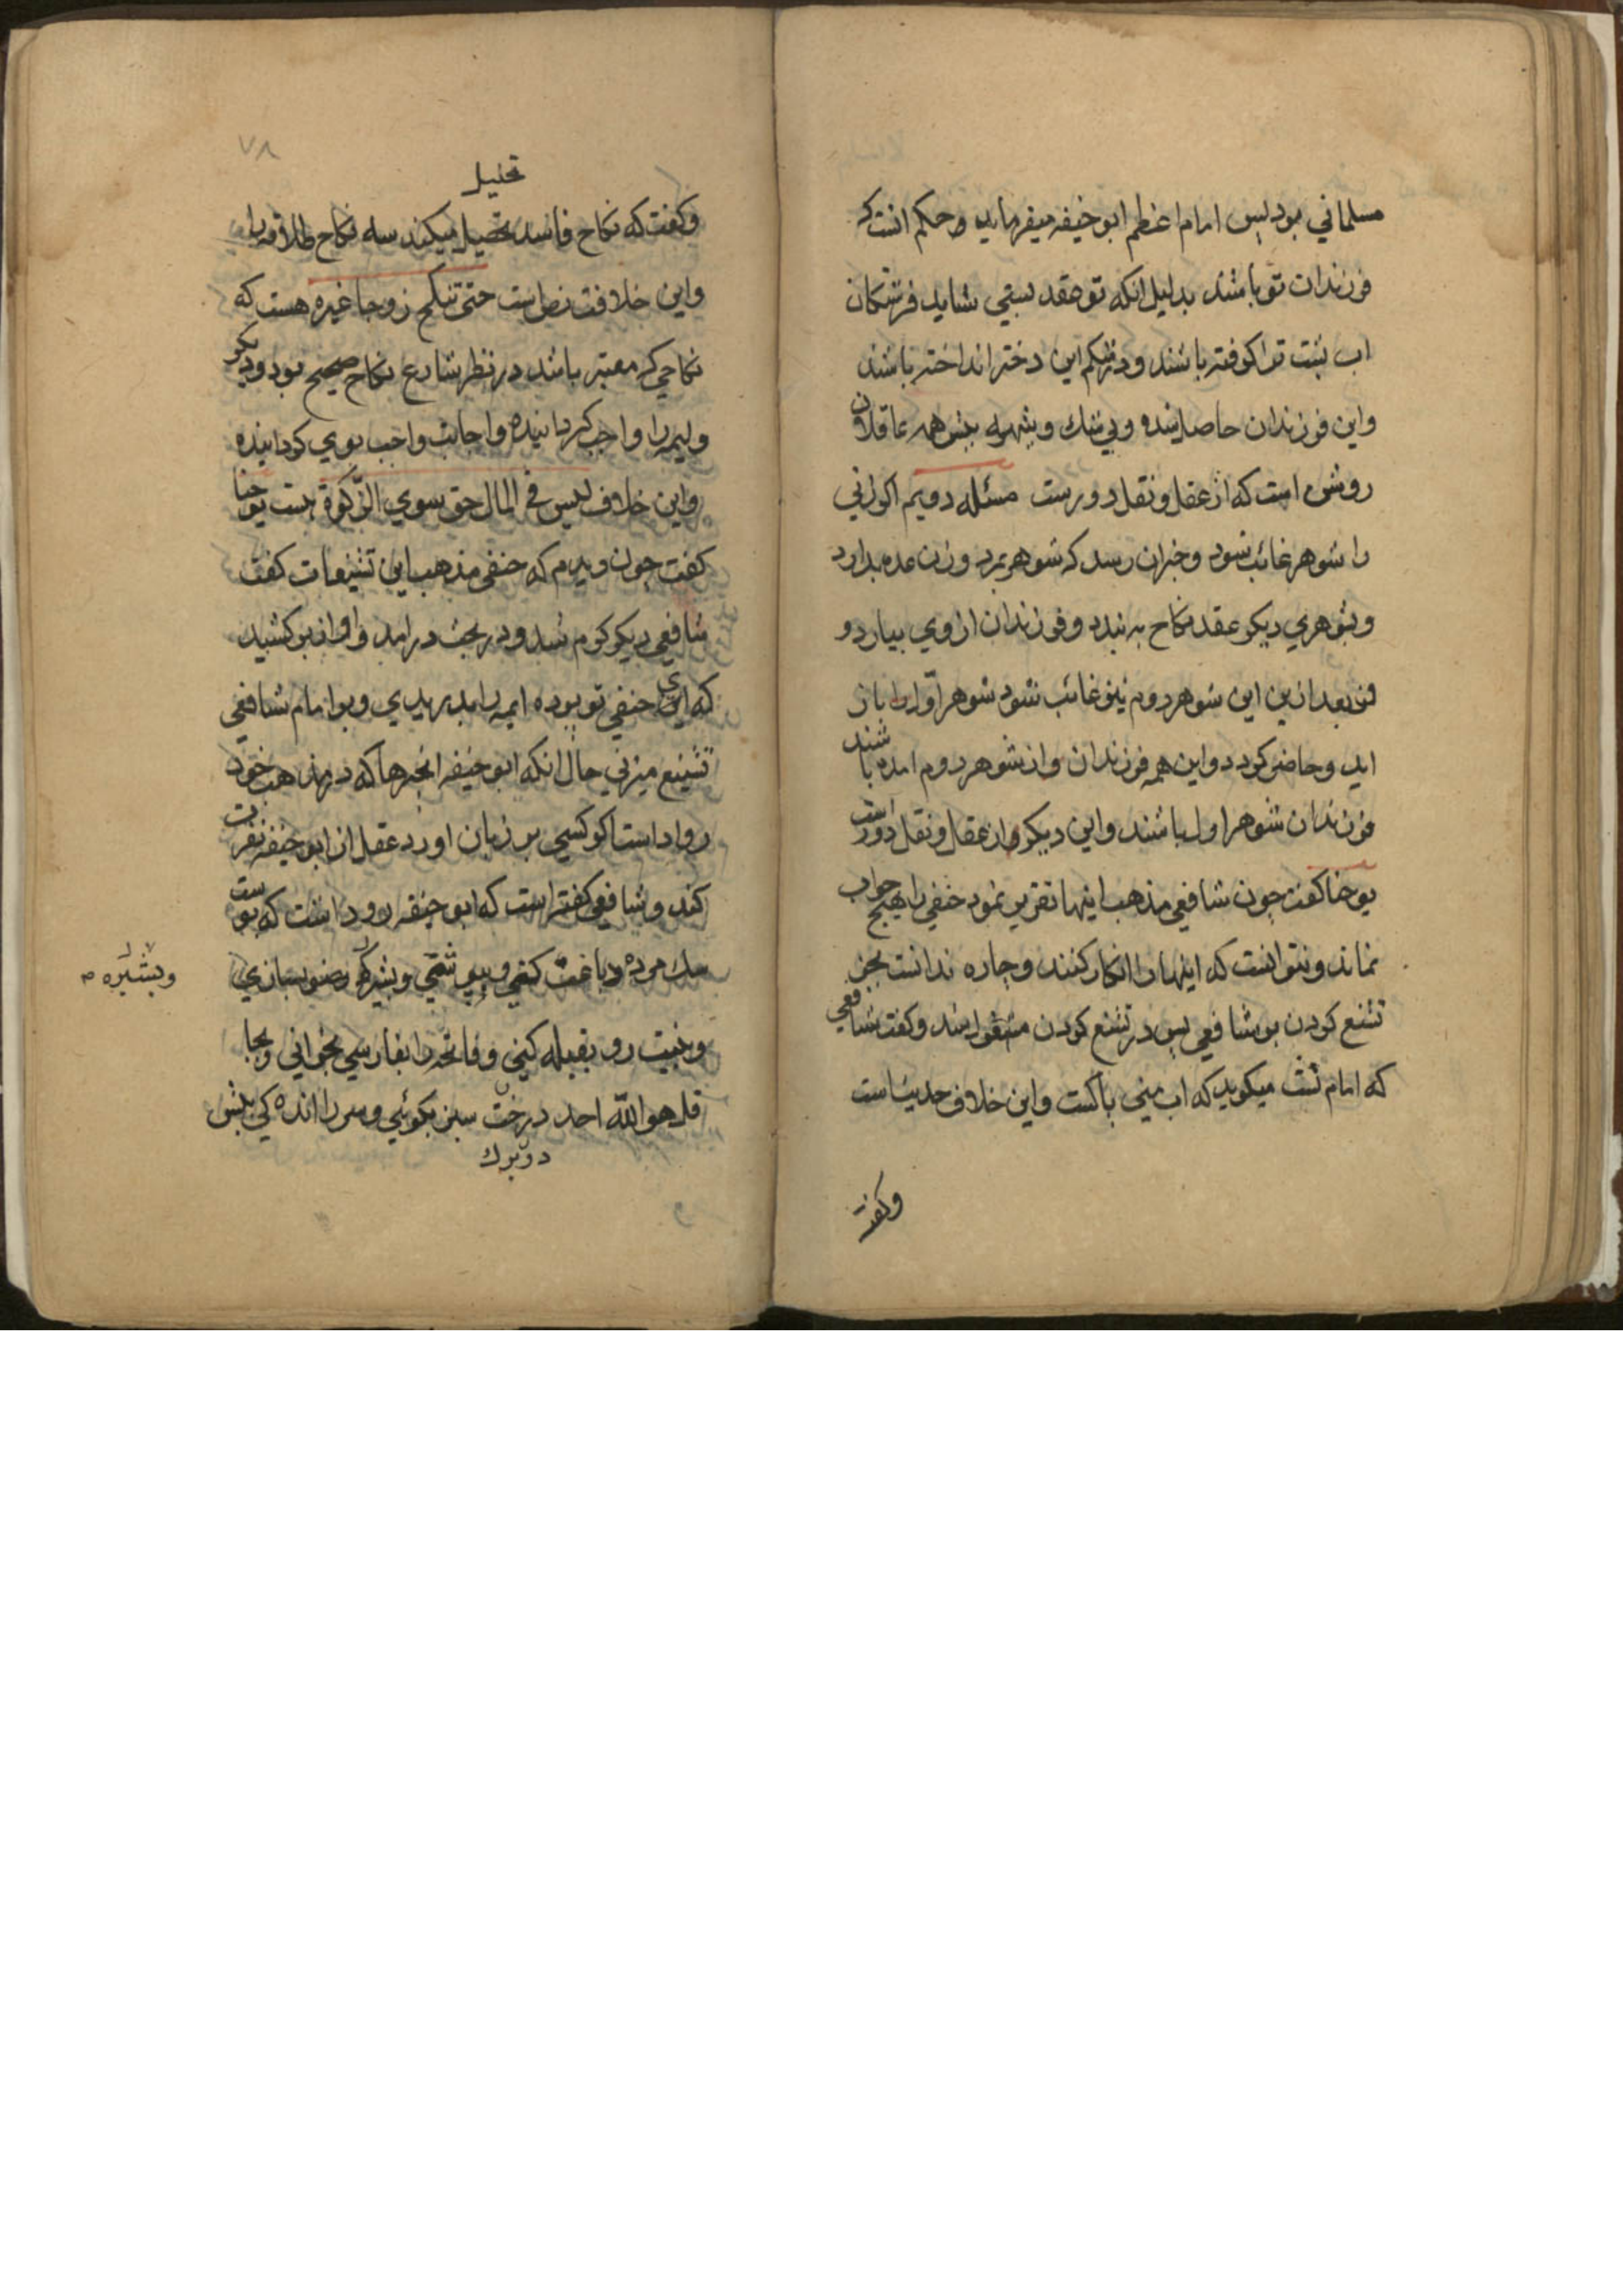 مسلماني بود پس امام اعظم ابو حنيفه ميفرمايد و حكم انست كه
فرزندان تو باشند بدليل انكه تو عقد بستي شايد فرشتكان
اب پشت ترا كرفته باشند و در شكم اين دختر انداخته باشند
واين فرزندان حاصل شده وبي شك وشبهه پيش همه عاقلان
روشن است كه از عقل ونقل دورست مسئله دويم اكر زني
را شوهر غائب شود وخبران رسد كه شوهر بمرد وزن عده بدارد
وبشوهري ديكر عقد نكاح به بندد وفرزندان از وي بيارد و
بعد ازين اين شوهر دوم نيز غائب شود شوهر اول باز
ايد وحاضر كردد واين همه فرزندان وان شوهر دوم امده باشند
فرزندان شوهر اول باشند واين ديكر از عقل ونقل دورست
يوحنا كفت چون شافعي مذهب اينها تقرير نمود حنفي را هيچ جواب
نماند ونتوانست كه اينها را انكار كنند وچاره ندانست بجز
تشنع كردن بر شافعي پس در تشنع كردن مشغول شد وكفت شافعي
كه امام تست ميكويد كه اب مني پاكست واين خلاف حديث است
وكفت
٧٨
تحليل
وكفت كه نكاح فاسد تحصيل ميكند سه نكاح طلاقه را
واين خلاف نص است حتى تنكح زوجا غيره هست كه
نكاحي كه معتبر باشد در نظر شارع نكاح صحيح بود وديكر
وليمه را واجب كردانيده واجابت واجب بوي كردانيده
واين خلاف ليس في المال حق سوي الزكوة است يوحنا
كفت چون ديدم كه حنفي مذهب اين تشنيعات كفت
شافعي ديكر كرم شد ودر بحث درامد واواز بر كشيد
كه اي حنفي تو بوده ايمه را بد ميديدي وبر امام شافعي
تشنيع ميزني حال انكه ابو حنيفه انچيزها كه در مذهب خود
روا داشت اكر كسي بر زبان اورد عقل از ابو حنيفه نفرت
كند وشافعي كفته است كه ابو حنيفه روا داشت كه پوست
سك مرده دباغت كني وبپوشي وبشيره وضو بسازي
وبشيره صح
ونيت رو بقبله كني وفاتحه را بفارسي بخواني وبجا
قل هو الله احد درخت سبز بكوئي وسر را اندكي پيش
دو برك